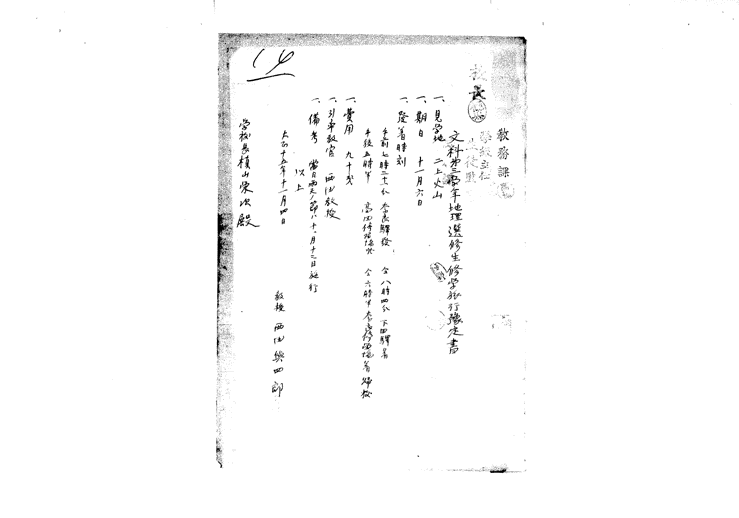 教務課
学級主任
生徒監
文科第三学年地理選修生修学旅行豫定書
一、見学地 二上火山
一、期日 十一月六日
一、發着時刻
午前七時三十八分 奈良驛發 仝八時四分 下田驛着
午後五時半 高田 仝六時半 奈良 着 帰校
一、費用 九十戋
一、引率教官 西田教授
一、備考 當日雨天ノ節ハ十一月十三日施行
以上
大正十五年十一月四日
教授 西田與四郎
学校長槇山榮次殿